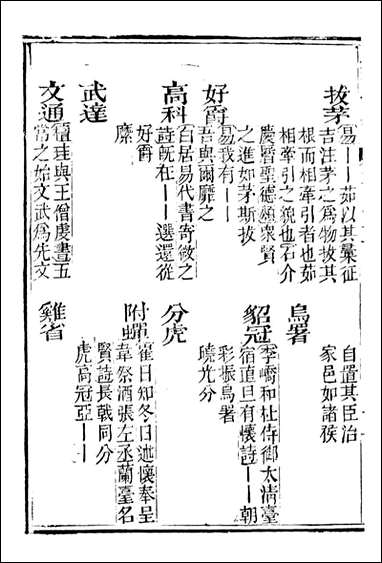 拔茅
易——茹以其彙征
吉注茅之為物拔其
根而相牽引者也茹
相牽引之貌也石介
慶曆聖德頌衆賢
之進如茅斯拔
好爵
易我有——
吾與爾靡之
高科
白居易代書寄微之
詩既在——選還從
好爵
縻
武達
文通
檀珪與王僧虔書五
常之始文武爲先文
自置其臣治
家邑如諸侯
烏署
貂冠
李嶠和杜侍御太清臺
宿直旦有懷詩——朝
彩振烏署
曉光分
分虎
附蟬
崔日知冬日述懷奉呈
韋祭酒張左丞蘭臺名
賢詩長戟同分
虎高冠亞——
雞省